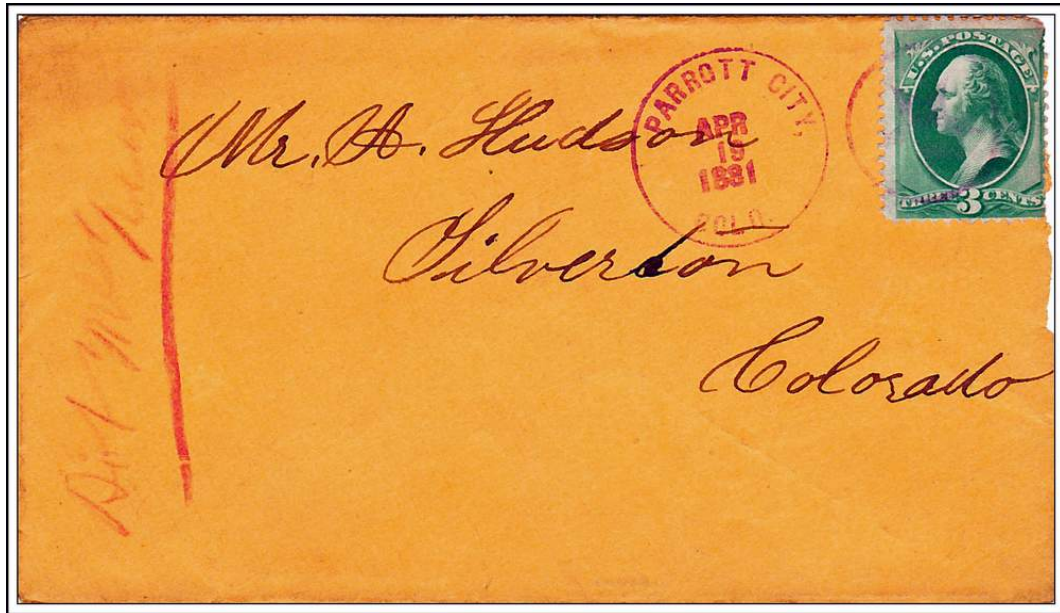 PARROTT CITY,
APR
19
1881
COLO.
U.S. POSTAGE
THREE 3 CENTS
Mr. H. Hudson
Silverton
Colorado